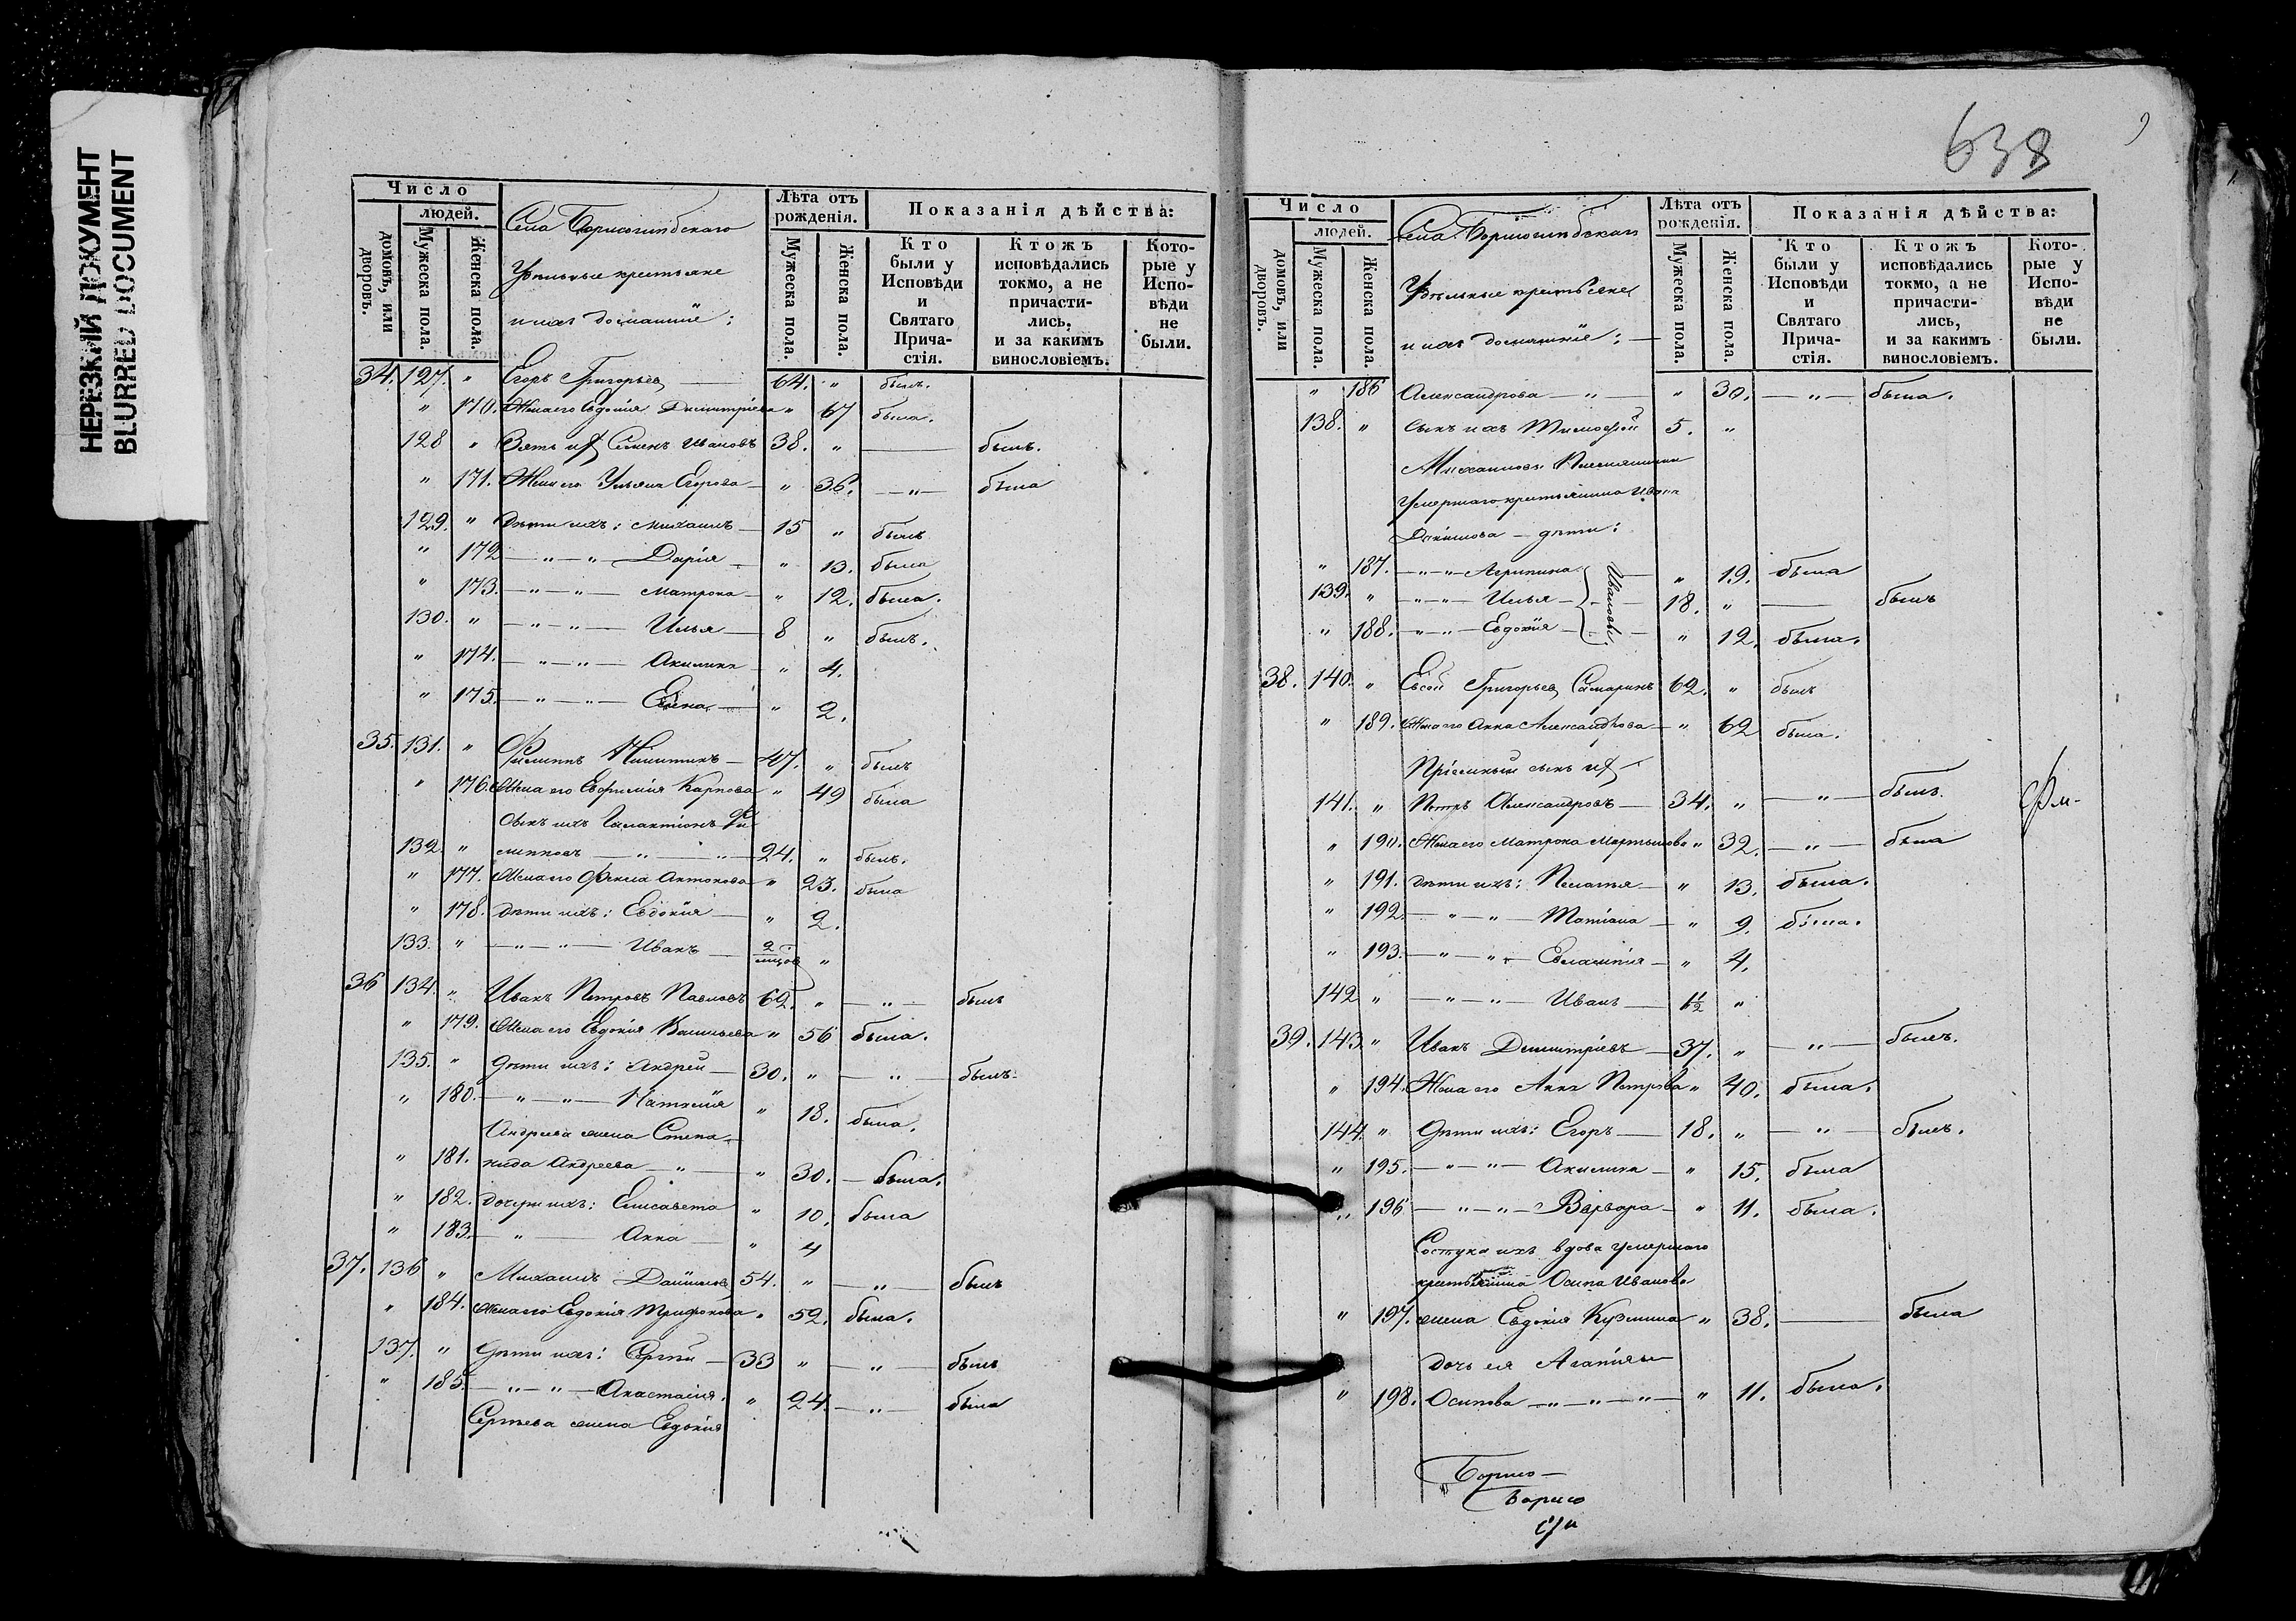 НЕРЕЗКИЙ ДОКУМЕНТ
BLURRED DOCUMENT
Число
людей.
домовъ, или дворовъ.
Мужеска пола.
Женска пола.
Села Борисоглѣбскаго
Удѣльные крестьяне
и ихъ домашніе:
Лѣта отъ рожденія.
Мужеска пола.
Женска пола.
Показанія дѣйства:
Кто были у Исповѣди и Святаго Причастія.
Ктожъ исповѣдались токмо, а не причастились, и за какимъ винословіемъ.
Которые у Исповѣди не были.
34. 127. " Егоръ Григорьев 64. " былъ.
" 170. Жена его Евдокія Димитріева " 67 была.
128 " Зять их Семенъ Ивановъ 38. " — былъ.
" 171. Жена его Ульяна Егорова " 36. — " — была
129. " Дѣти ихъ: Михаилъ 15 " былъ
" 172 — " — " — Дарія " 13. была
" 173. — " — " — Матрона " 12. была.
130. " — " — " — Илья 8 " былъ.
" 174. — " — " — Акилина " 4.
" 175. — " — " — Елена " 2.
35. 131. " Филиппъ Никитинъ 47. " былъ
" 176. Жена его Евфимія Карпова " 49 была
Сынъ ихъ Галактіонъ Фи-
132. " липповъ — " — " — 24. " былъ.
" 177. Жена его Фекла Антонова " 23. была
" 178. Дѣти ихъ: Евдокія " 2.
133. " — " — " — Иванъ 2 "
36 134. " Иванъ Петровъ Павловъ 62. " — " — былъ
" 179. Жена его Евдокія Васильева " 56 была.
135. " Дѣти ихъ: Андрей 30. " — " — былъ.
" 180. — " — " — Наталія " 18. была.
Андреева жена Степа-
" 181. нида Андреева — " — " 30. — была.
" 182. Дочери ихъ: Елисавета " 10. была
" 183. — " — Анна " 4
37. 136 " Михаилъ Данилов 54. " — " — былъ
" 184. Жена его Евдокія Трифонова " 52. была.
137. " Дѣти ихъ: Сергѣй 33 " — " — былъ
" 185. — " — " — Анастасія. " 24. — " — была
Сергѣева жена Евдокія
638
Число
людей.
домовъ, или дворовъ.
Мужеска пола.
Женска пола.
Села Борисоглѣбскаго
Удѣльные крестьяне
и ихъ домашніе:
Лѣта отъ рожденія.
Мужеска пола.
Женска пола.
Показанія дѣйства:
Кто были у Исповѣди и Святаго Причастія.
Ктожъ исповѣдались токмо, а не причастились, и за какимъ винословіемъ.
Которые у Исповѣди не были.
" 186 Александрова — " — " 30. — " — была.
138. " Сынъ ихъ Тимофей 5. "
Михаиловы Племянники
Умершаго крестьянина Ивана
Данилова — дѣти:
" 187. — " — " — Агрипина " 19. была
139. " — " — " — Илья 18. " — былъ
Ивановы
" 188. — " — " — Евдокія " 12. была.
38. 140. " Евсей Григорьев Самаринъ 62. " былъ
" 189. Жена его Анна Александрова " 62 была.
Пріемный сынъ их
141. " Петръ Александровъ 34. " — " — былъ.
" 190. Жена его Матрона Мартынова " 32. — " — была
" 191. Дѣти ихъ: Пелагья " 13. была.
" 192. — " — " — Татіана " 9. была.
" 193. — " — " — Евлампія " 4.
142 " — " — " — Иванъ 1/2 "
39. 143. " Иванъ Димитріевъ 37. " — " — былъ.
" 194. Жена его Анна Петрова " 40. была.
144 " Дѣти ихъ: Егоръ 18. " — " — былъ.
" 195. — " — " — Акилина " 15. была
" 196 — " — " — Варвара " 11. была.
вдова умершаго
крестьянина Осипа Иванова
" 197. жена Евдокія Кузмина " 38. — была
Дочь ея Агапія
" 198. Осипова — " — " — " — " 11. была.
Борисо-
Борисо